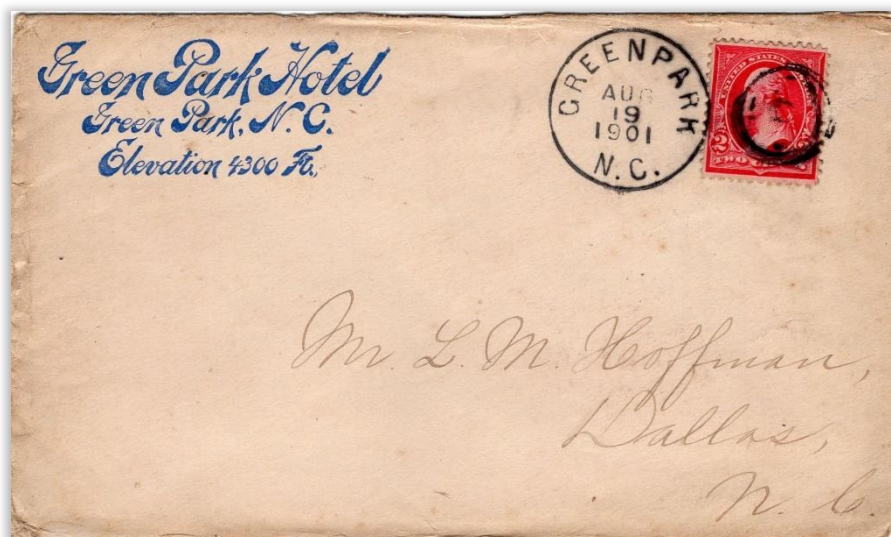 Green Park Hotel
Green Park, N. C.
Elevation 4300 Ft.
GREENPARK
AUG
19
1901
N.C.
UNITED STATES
2
TWO
Mr. L. M. Hoffman,
Dallas,
N. C.